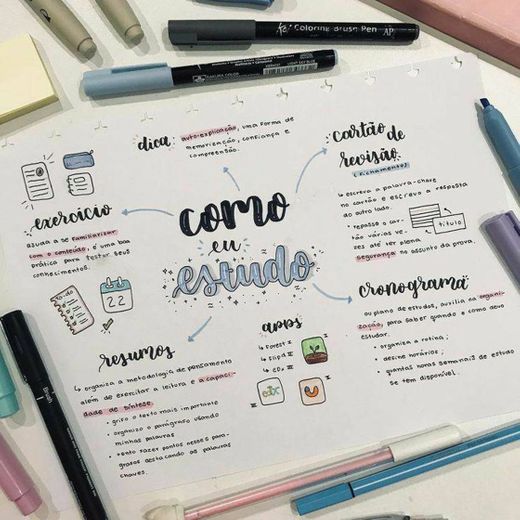 Coloring Brush Pen
AP
SAKURA COLOR
dica
auto-explicação, uma forma de
memorização, confiança e
compreensão.
cartão
de
revisão
(fichamento)
↳ escreva a palavra-chave
no cartão e escreva a resposta
do outro lado
↳ repasse o car-
tão várias ve-
zes até ter plena
segurança no assunto da prova.
título
exercício
ajuda a se familiarizar
com o conteúdo, é uma boa
prática para testar seus
conhecimentos.
como
eu
estudo
to-do
22
cronograma
ou plano de estudos, auxilia na organi-
zação, para saber quando e como devo
estudar.
• organiza a rotina;
• define horários;
• quantas horas semanais de estudo
se tem disponível.
apps
↳ Forest I
↳ Flipd II
I
II
resumos
↳ organiza a metodologia de pensamento
além de exercitar a leitura e a capaci-
dade de síntese.
• grifo o texto mais importante
• organizo o parágrafo usando
minhas palavras
• tento fazer pontos nesses pará-
grafos destacando as palavras
chaves.
Brush